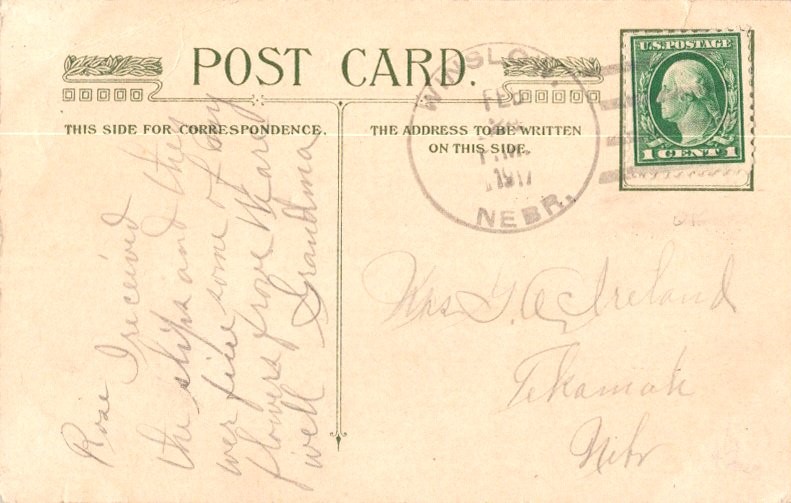 POST CARD.
THIS SIDE FOR CORRESPONDENCE.
THE ADDRESS TO BE WRITTEN
ON THIS SIDE.
WINSLOW,
FEB
1917
NEBR.
U.S. POSTAGE
1 CENT 1
Rose I received
the slips and they
wer fine some of my
flowers froze
well Grandma
Mrs G. A. Ireland
Tekamah
Nebr